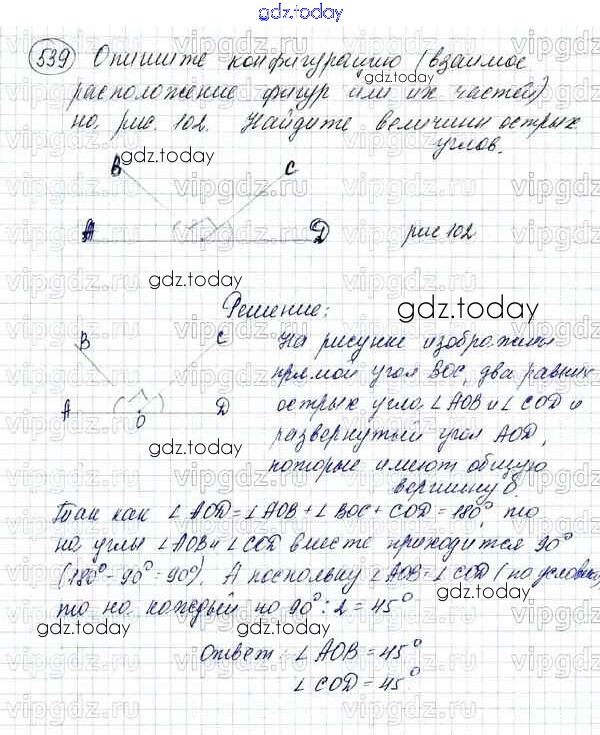 gdz.today
539 Опишите конфигурацию (взаимое
расположение фигур или их частей)
на рис. 102. Найдите величины острых
углов.
B C
A D рис 102
Решение:
B C
A O D
На рисунке изображены
прямой угол BOC, два равных
острых угла ∠AOB и ∠COD и
развернутый угол AOD,
которые имеют общую
вершину O.
Так как ∠AOD = ∠AOB + ∠BOC + COD = 180°, то
на углы ∠AOB и ∠COD вместе приходится 90°
(180° - 90° = 90°). А поскольку ∠AOB = ∠COD (по условию)
то на каждый по 90° : 2 = 45°
Ответ: ∠AOB = 45°
∠COD = 45°